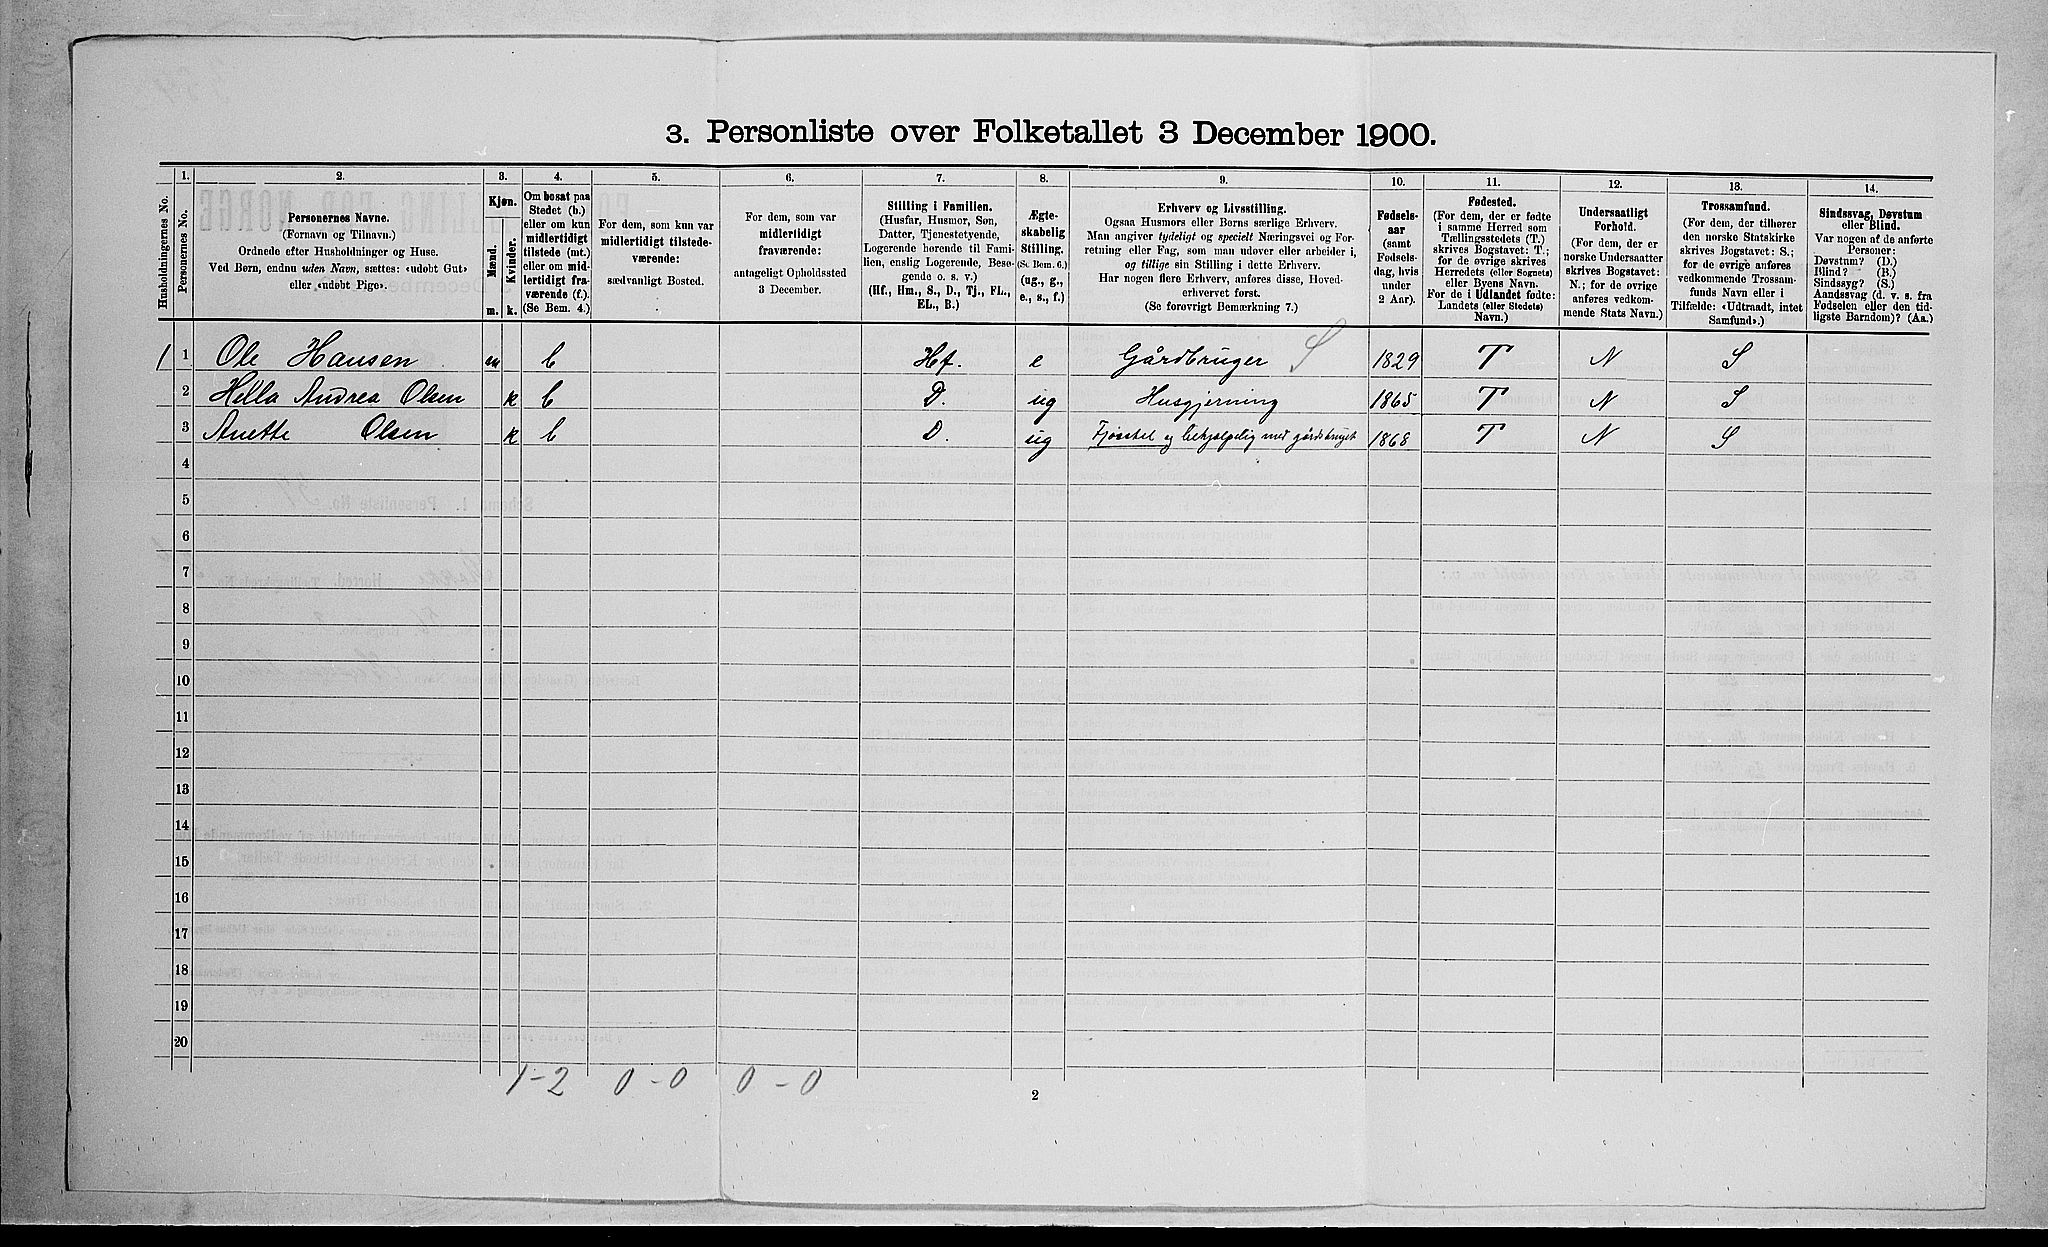 3. Personliste over Folketallet 3 December 1900.
Husholdningernes No.
1.
Personernes No.
2.
Personernes Navne.
(Fornavn og Tilnavn.)
Ordnede efter Husholdninger og Huse.
Ved Børn, endnu uden Navn, sættes: «udøbt Gut»
eller «udøbt Pige».
3.
Kjøn.
Mænd.
Kvinder.
m. k.
4.
Om bosat paa
Stedet (b.)
eller om kun
midlertidigt
tilstede (mt.)
eller om mid-
lertidigt fra-
værende (f.).
(Se Bem. 4.)
5.
For dem, som kun var
midlertidigt tilstede-
værende:
sædvanligt Bosted.
6.
For dem, som var
midlertidigt
fraværende:
antageligt Opholdssted
3 December.
7.
Stilling i Familien.
(Husfar, Husmor, Søn,
Datter, Tjenestetyende,
Logerende hørende til Fami-
lien, enslig Logerende, Besø-
gende o. s. v.)
(Hf., Hm., S., D., Tj., FL.,
EL., B.)
8.
Ægte-
skabelig
Stilling.
(Se Bem. 6.)
(ug., g.,
e., s., f.)
9.
Erhverv og Livsstilling.
Ogsaa Husmors eller Børns særlige Erhverv.
Man angiver tydeligt og specielt Næringsvei og For-
retning eller Fag, som man udøver eller arbeider i,
og tillige sin Stilling i dette Erhverv.
Har nogen flere Erhverv, anføres disse, Hoved-
erhvervet først.
(Se forøvrigt Bemærkning 7.)
10.
Fødsels-
aar
(samt
Fødsels-
dag, hvis
under
2 Aar).
11.
Fødested.
(For dem, der er fødte
i samme Herred som
Tællingsstedets (T.)
skrives Bogstavet: T.;
for de øvrige skrives
Herredets (eller Sognets)
eller Byens Navn.
For de i Udlandet fødte:
Landets (eller Stedets)
Navn.)
12.
Undersaatligt
Forhold.
(For dem, der er
norske Undersaatter
skrives Bogstavet:
N.; for de øvrige
anføres vedkom-
mende Stats Navn.)
13.
Trossamfund.
(For dem, der tilhører
den norske Statskirke
skrives Bogstavet: S.;
for de øvrige anføres
vedkommende Trossam-
funds Navn eller i
Tilfælde: «Udtraadt, intet
Samfund».)
14.
Sindssvag, Døvstum
eller Blind.
Var nogen af de anførte
Personer:
Døvstum? (D.)
Blind? (B.)
Sindssyg? (S.)
Aandssvag (d. v. s. fra
Fødselen eller den tid-
ligste Barndom)? (Aa.)
1 1 Ole Hansen m b Hf. e Gårdbruger S 1829 T N S
2 Hella Andrea Olsen k b D. ug Husgjerning 1865 T N S
3 Anette Olsen k b D. ug Fjøsstel og behjælpelig med gårdsbruget 1868 T N S
4
5
6
7
8
9
10
11
12
13
14
15
16
17
18
19
20
1-2 0-0 0-0
2